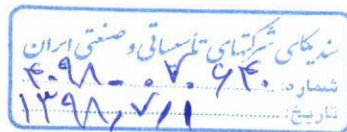 سندیکای شرکتهای تأسیساتی و صنعتی ایران
شماره: ۴۰۹۸-۰۷۰۶۴۰
تاریخ: ۱۳۹۸/۷/۱